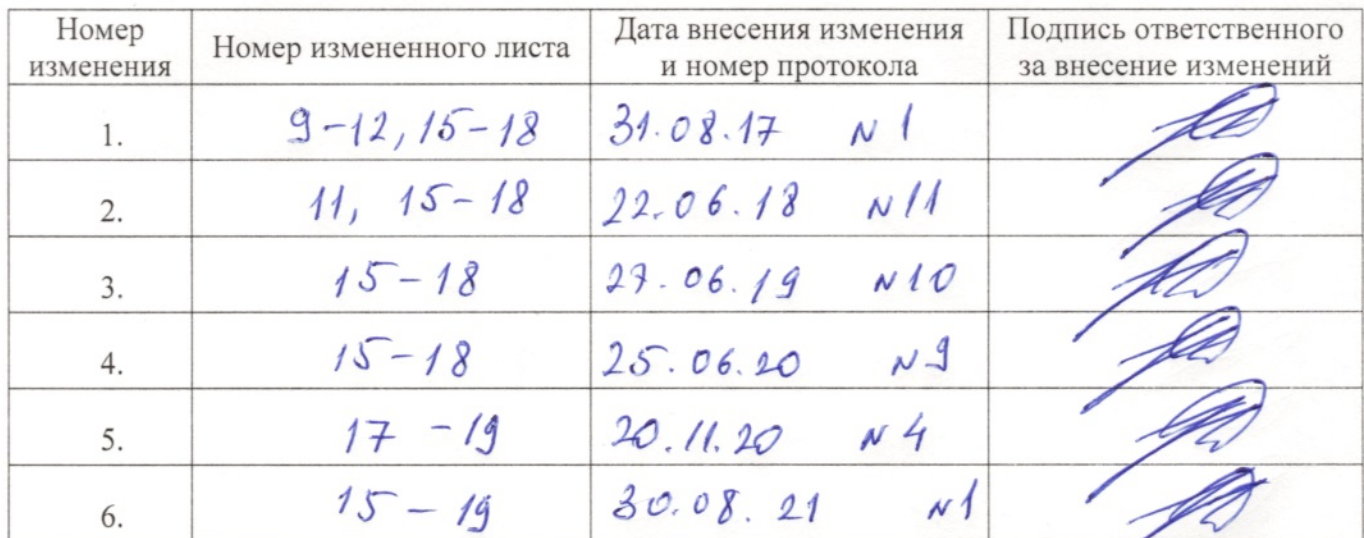 Номер изменения | Номер измененного листа | Дата внесения изменения и номер протокола | Подпись ответственного за внесение изменений
1. | 9-12, 15-18 | 31.08.17 N 1
2. | 11, 15-18 | 22.06.18 N 11
3. | 15-18 | 27.06.19 N 10
4. | 15-18 | 25.06.20 N 9
5. | 17 - 19 | 20.11.20 N 4
6. | 15 - 19 | 30.08.21 N 1